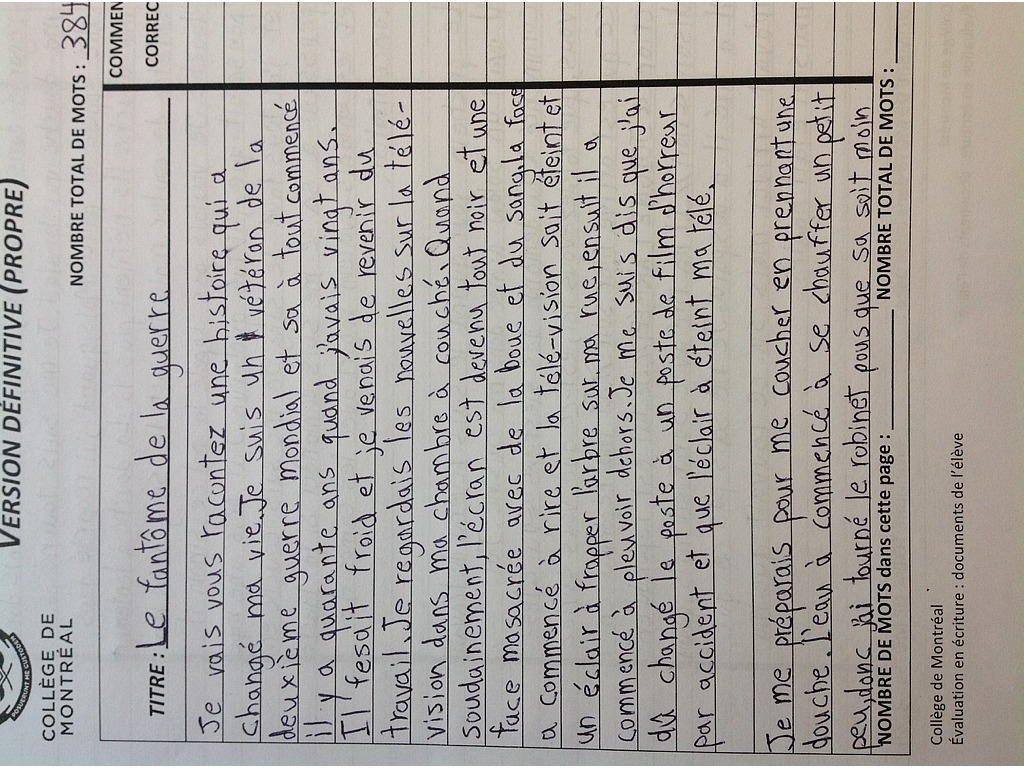 VERSION DÉFINITIVE (PROPRE)
COLLÈGE DE
MONTRÉAL
NOMBRE TOTAL DE MOTS : 384
TITRE : Le fantôme de la guerre
COMMEN
CORREC
Je vais vous racontez une histoire qui a
changé ma vie. Je suis un vétéran de la
deuxième guerre mondial et sa à tout commencé
il y a quarante ans quand j'avais vingt ans.
Il fesait froid et je venais de revenir du
travail. Je regardais les nouvelles sur la télé-
vision dans ma chambre à couché. Quand
soudainement, l'écran est devenu tout noir et une
face masacrée avec de la boue et du sang, la face
a commencé à rire et la télé-vision sait éteint et
un éclair à frapper l'arbre sur ma rue, ensuit il a
commencé à pleuvoir dehors. Je me suis dis que j'ai
dû changé le poste à un poste de film d'horreur
par accident et que l'éclair à éteint ma télé.
Je me préparais pour me coucher en prennant une
douche. L'eau à commencé à se chauffer un petit
peu, donc j'ai tourné le robinet pous que sa soit moin
NOMBRE DE MOTS dans cette page : NOMBRE TOTAL DE MOTS :
Collège de Montréal
Évaluation en écriture : documents de l'élève